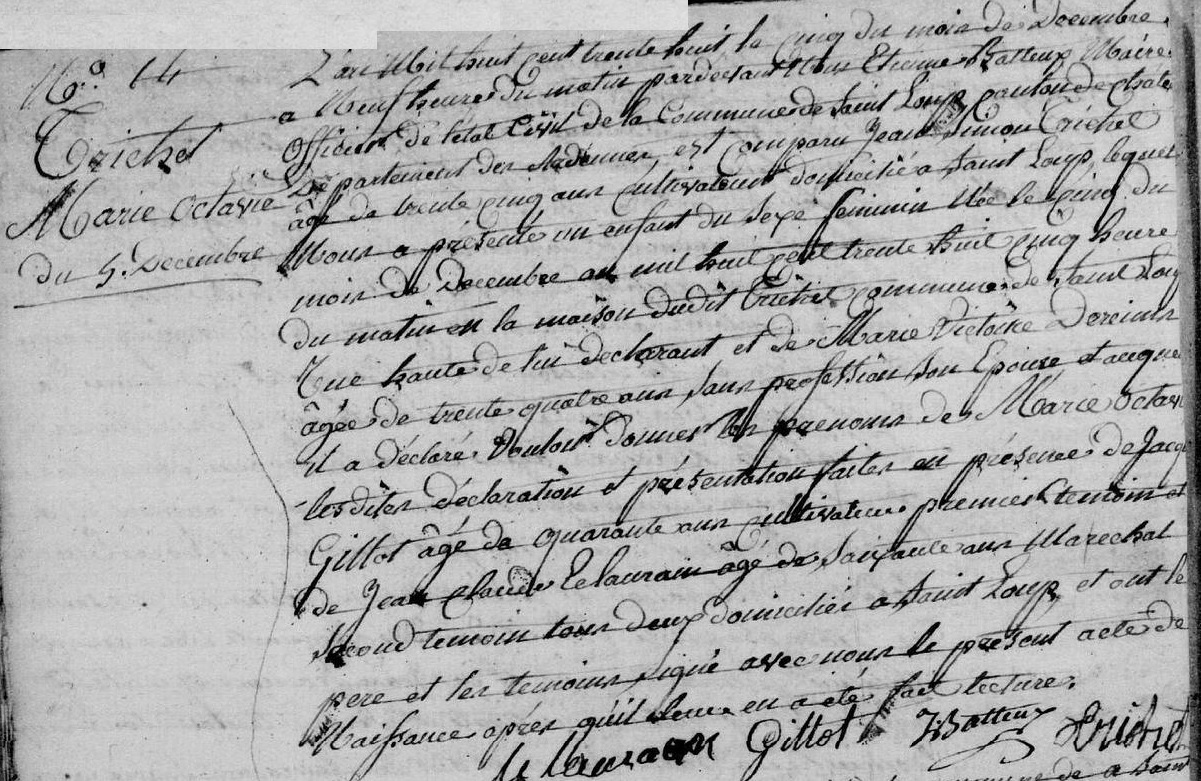 N.o 14
Trichet
Marie Octavie
du 5. Decembre
L'an Mil huit cent trente huit le Cinq du mois de Decembre
a Neuf heures du matin pardevant Nous Etienne Batteux Maire
Officier de l'état Civil de la Commune de Saint Loup, canton de
Département des Ardennes, est Comparu Jean Simon Trichet
âgé de trente cinq ans Cultivateur domicilié a Saint Loup, lequel
Nous a présenté un enfant du Sexe féminin Née le Cinq du
mois de Decembre an mil huit cent trente huit Cinq heure
du matin en la maison dudit Trichet commune de Saint Loup
Rue haute de lui déclarant et de Marie Victoire Dereims
âgée de trente quatre ans, Sans profession Son Epouse et auquel
il a déclaré Vouloir donner les prenoms de Marie Octavie
lesdites déclaration et présentation faites en présence de Jacq
Gillot âgé de quarante ans cultivateur premier temoin et
de Jean Claude Lelaurain âgé de Soixante ans Marechal
Second temoin tous deux domiciliés a Saint Loup, et ont le
pere et les temoins signé avec nous le présent acte de
Naissance après qu'il leur en a été fait lecture.
Lelaurain Gillot Batteux Trichet